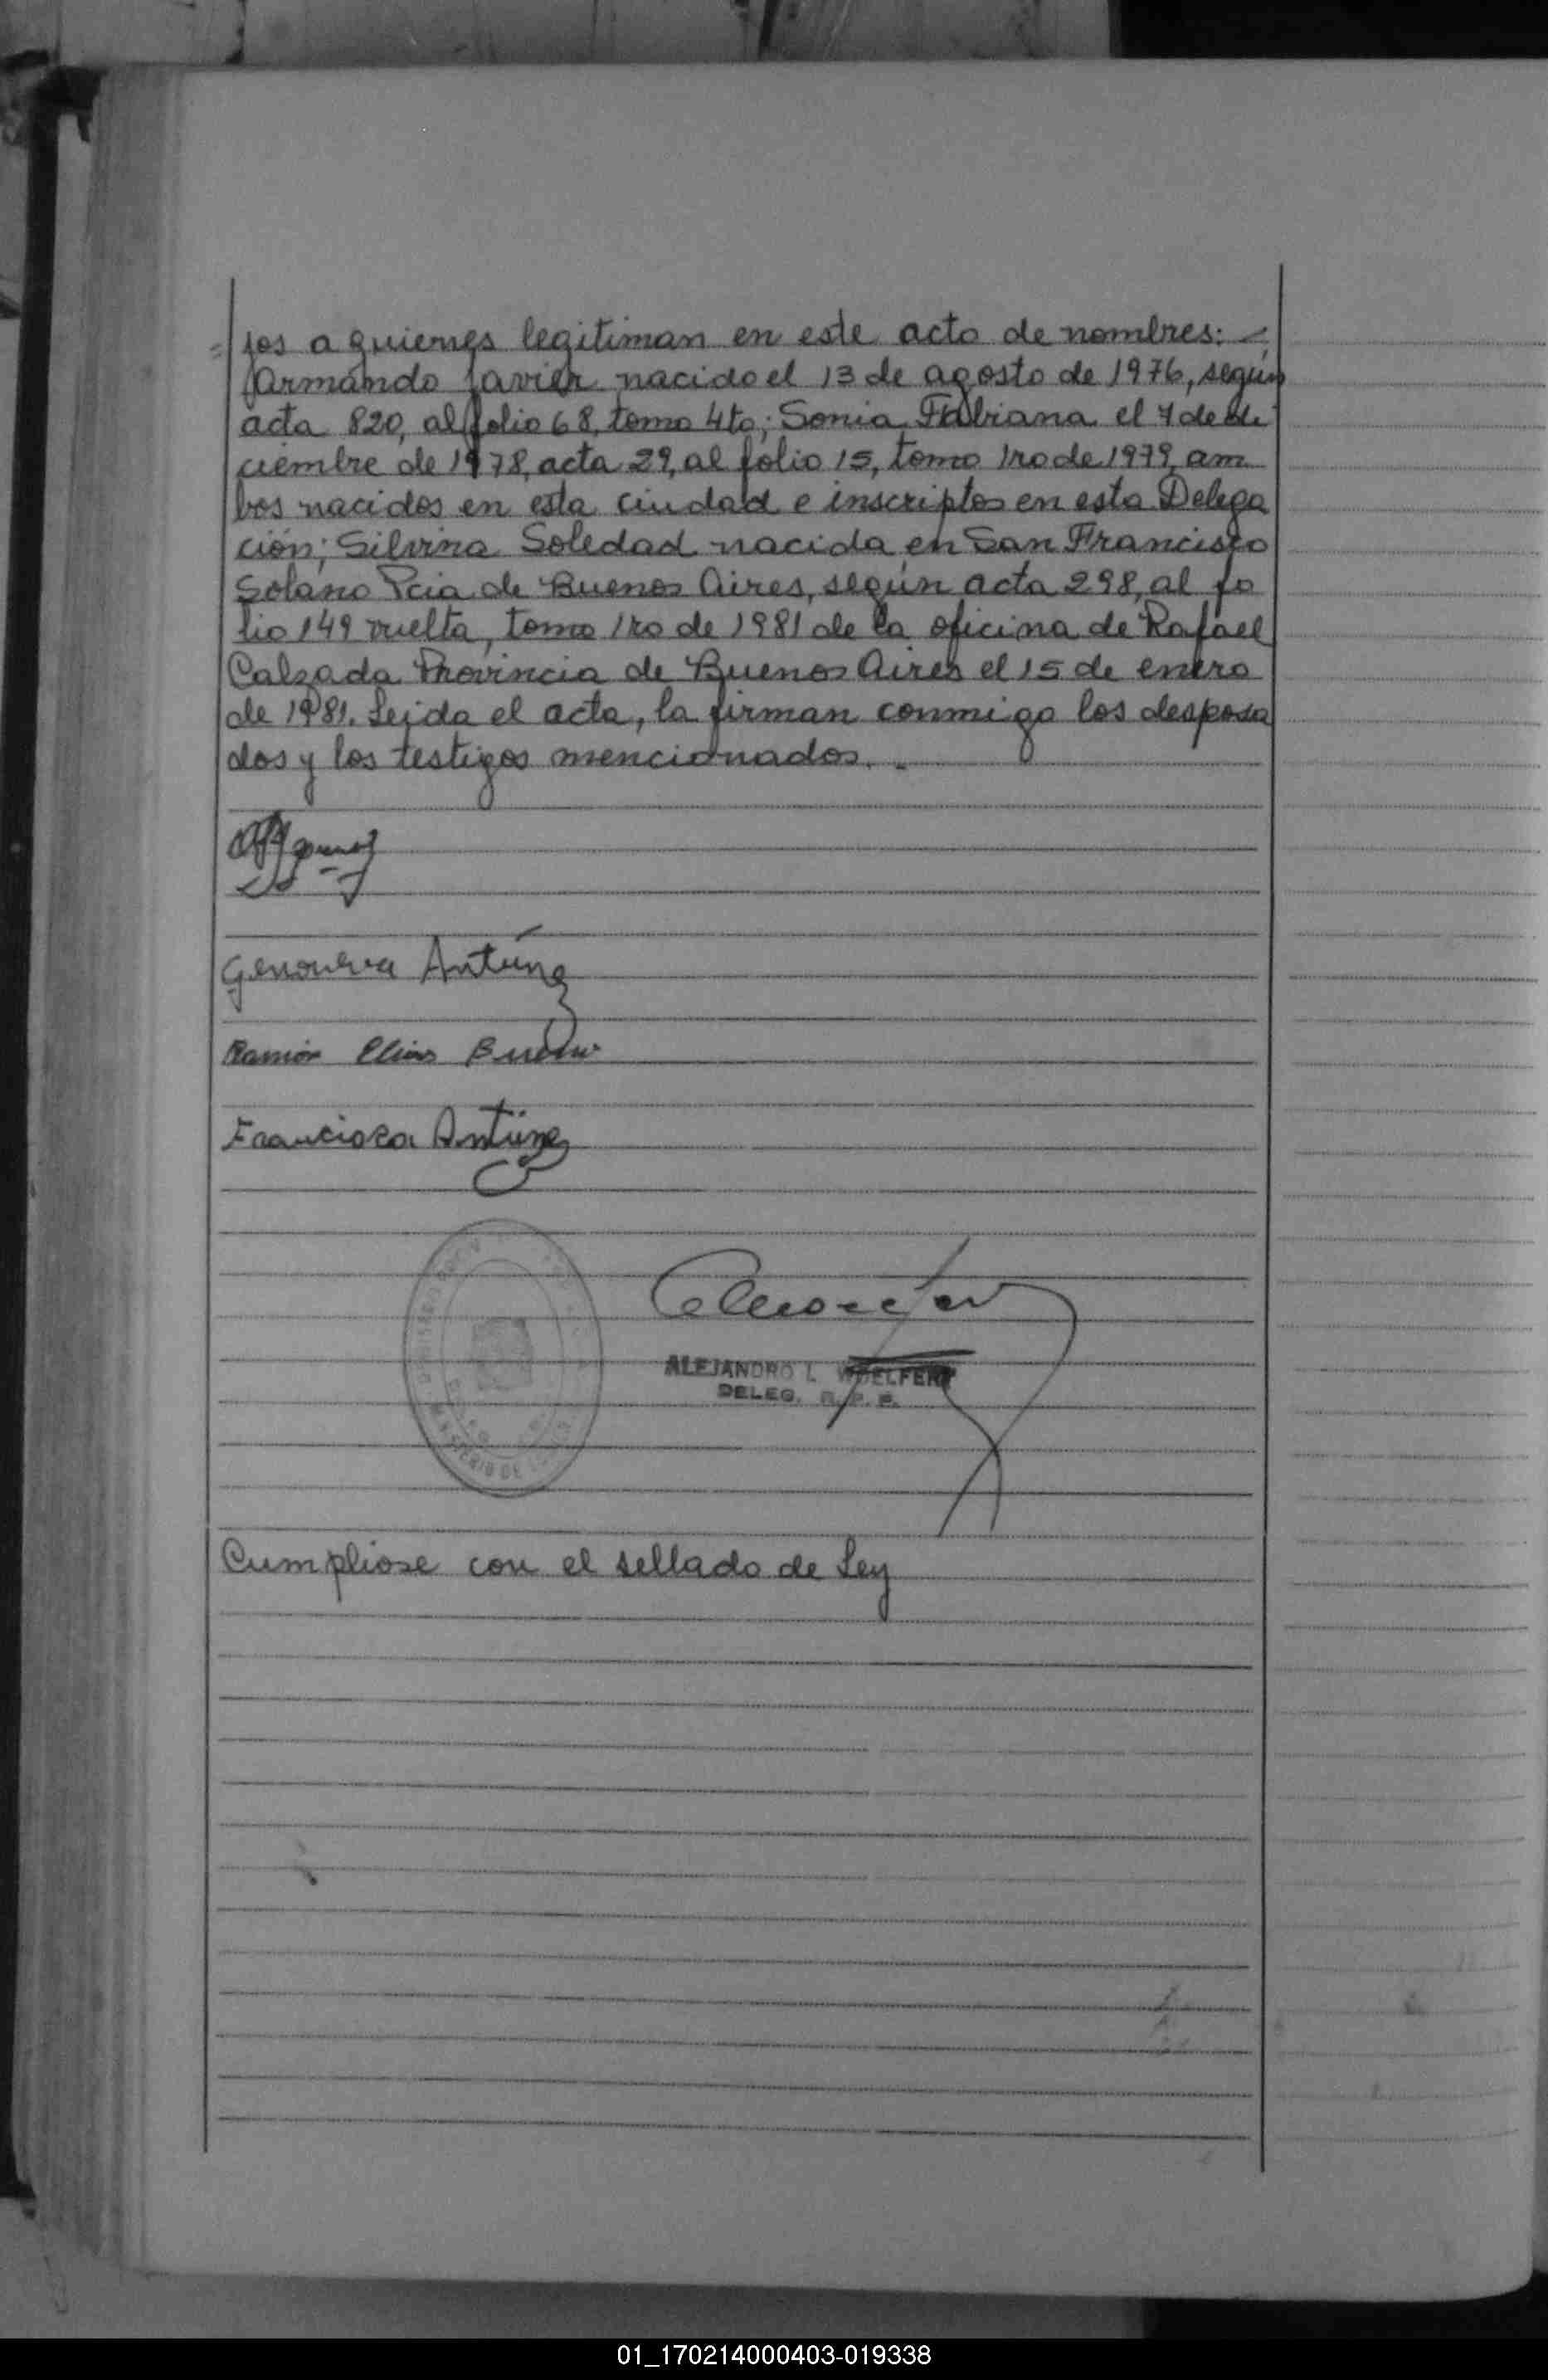 = jos a quienes legitiman en este acto de nombres: -
Armando Javier nacido el 13 de agosto de 1976, según
acta 820, al folio 68, tomo 4to; Sonia Fabiana el 7 de di
ciembre de 1978, acta 29, al folio 15, tomo 1ro de 1979, am
bos nacidos en esta ciudad e inscriptos en esta Delega
ción; Silvina Soledad nacida en San Francisco
Solano Pcia de Buenos Aires, según acta 298, al fo
lio 149 vuelta, tomo 1ro de 1981 de la oficina de Rafael
Calzada Provincia de Buenos Aires el 15 de enero
de 1981. Leida el acta, la firman conmigo los desposa
dos y los testigos mencionados. -
Genoveva Antúnez
Ramón Elias
Francisca Antúnez
ALEJANDRO L. WOELFERT
DELEG. R. P. P.
Cumpliose con el sellado de Ley
01_170214000403-019338